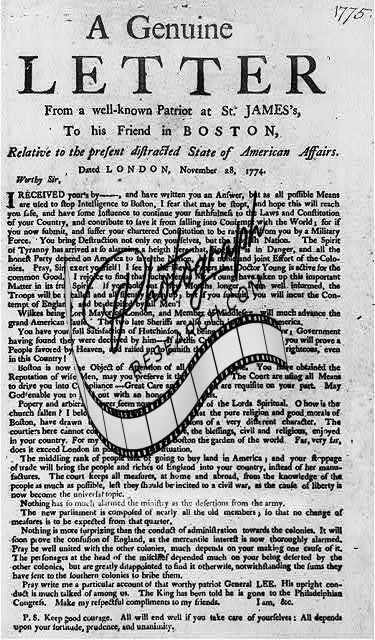 1775.
A Genuine
LETTER
From a well-known Patriot at St. JAMES's,
To his Friend in BOSTON,
Relative to the present distracted State of American Affairs.
Dated LONDON, November 28, 1774.
Worthy Sir,
I RECEIVED your's by ——, and have written you an Answer, but as all possible Means
are used to stop Intelligence to Boston, I fear that may be stopt, and hope this will reach
you safe, and have some Influence to continue your faithfulness to the Laws and Constitution
of your Country, and contribute to save it from falling into Contempt with the World; for if
you now submit, and suffer your chartered Constitution to be from you by a Military
Force. You bring Destruction not only on yourselves, but the Nation. The Spirit
of Tyranny has arrived at so a height here, that is in Danger, and all the
honest Party depend on America to save the Nation, and joint Effort of the Colo-
nies. Pray, Sir, exert yourself I see by Doctor Young is active for the
common Good. I rejoice to find having taken up this important
Matter in its true Spirit. If you longer well informed, the
Troops will be called and all if you you will incur the Con-
tempt of England and be Men!
Wilkes being Lord Mayor London, and Member Middlesex, will much advance the
grand American cause. The two late Sheriffs are also much America.
You have your full Satisfaction of Hutchinson, being Government
having found they were deceived by him you will prove a
People favored by Heaven, and raised to punish righteous, even
in this Country!
Boston is now the Object of Attention of all You have obtained the
Reputation of wise Men, may you preserve it the Court are using all Means
to drive you into Compliance—Great are requisite on your part. May
God enable you to out with an
Popery and arbitrary Power seem of the Lords Spiritual. O how is the
church fallen? I that the pure religion and good morals of
Boston, have drawn of a very different character. The
courtiers here cannot the blessings, civil and religious, enjoyed
in your country. For my Boston the garden of the world. Far, very far,
does it exceed London in situation.
The middling rank of people are going to buy land in America; and your stoppage
of trade will bring the people and riches of England into your country, instead of her manu-
factures. The court keeps all measures, at home and abroad, from the knowledge of the
people as much as possible, lest they should be incited to a civil war, as the cause of liberty is
now become the universal topic.
Nothing has so much alarmed the ministry as the desertions from the army.
The new parliament is composed of nearly all the old members; so that no change of
measures is to be expected from that quarter.
Nothing is more surprizing than the conduct of administration towards the colonies. It will
soon prove the confusion of England, as the mercantile interest is now thoroughly alarmed.
Pray be well united with the other colonies, much depends on your making one cause of it.
The personages at the head of the mischief depended much on your being deserted by the
other colonies, but are greatly disappointed to find it otherwise, notwithstanding the sums they
have sent to the southern colonies to bribe them.
Pray write me a particular account of that worthy patriot General LEE. His upright con-
duct is much talked of among us. The King has been told he is gone to the Philadelphia
Congress. Make my respectful compliments to my friends. I am, &c.
P. S. Keep good courage. All will end well if you take care of yourselves: All depends
upon your fortitude, prudence, and unanimity.
Photograph
RESEARCH.COM